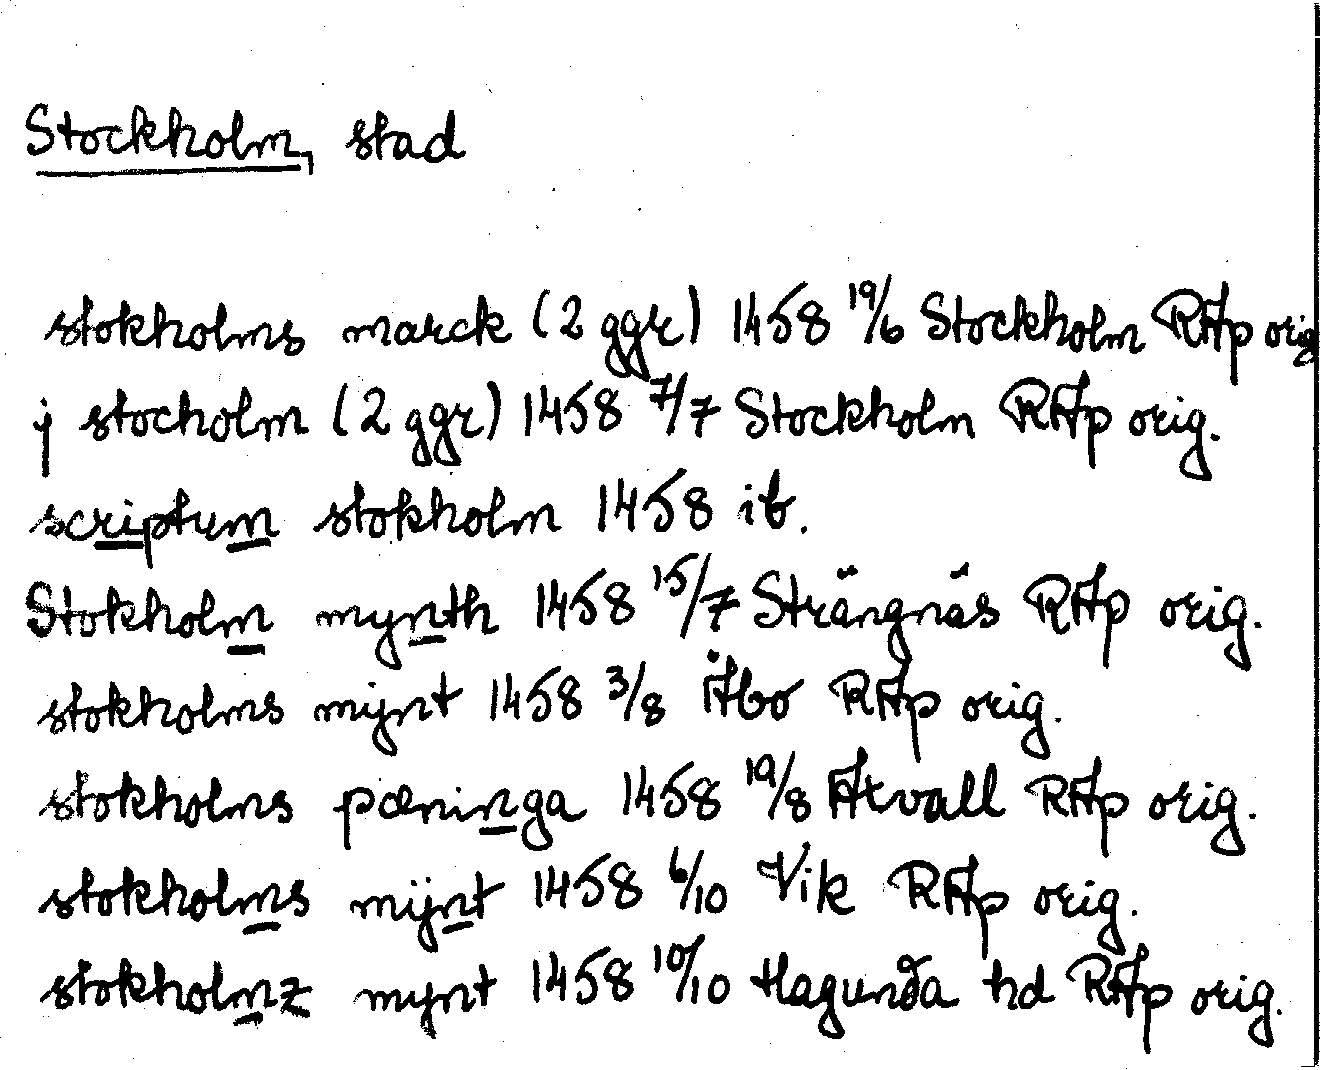 Stockholm, stad
stokholms marck (2 ggr) 1458 19/6 Stockholm RAp orig
j stocholm (2 ggr) 1458 7/7 Stockholm RAp orig.
scriptum stokholm 1458 ib.
Stokholm mynth 1458 15/7 Strängnäs RAp orig.
stokholms mijnt 1458 3/8 Åbo RAp orig.
stokholms pæninga 1458 19/8 Arvall RAp orig.
stokholms mijnt 1458 6/10 Vik RAp orig.
stokholmz mynt 1458 10/10 Hagunda hd RAp orig.